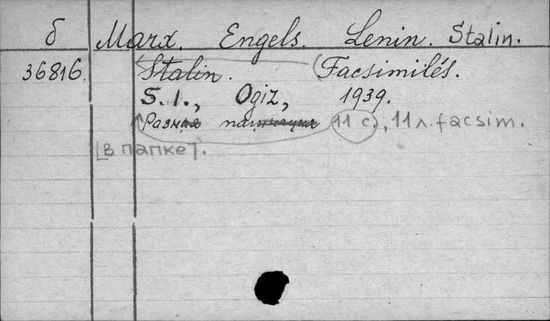 б Marx. Engels. Lenin. Stalin.
36816. Stalin. (Facsimilés.
S. l., Ogiz, 1939.
Разная пагинация 11 с., 11 л. facsim.
[в папке].